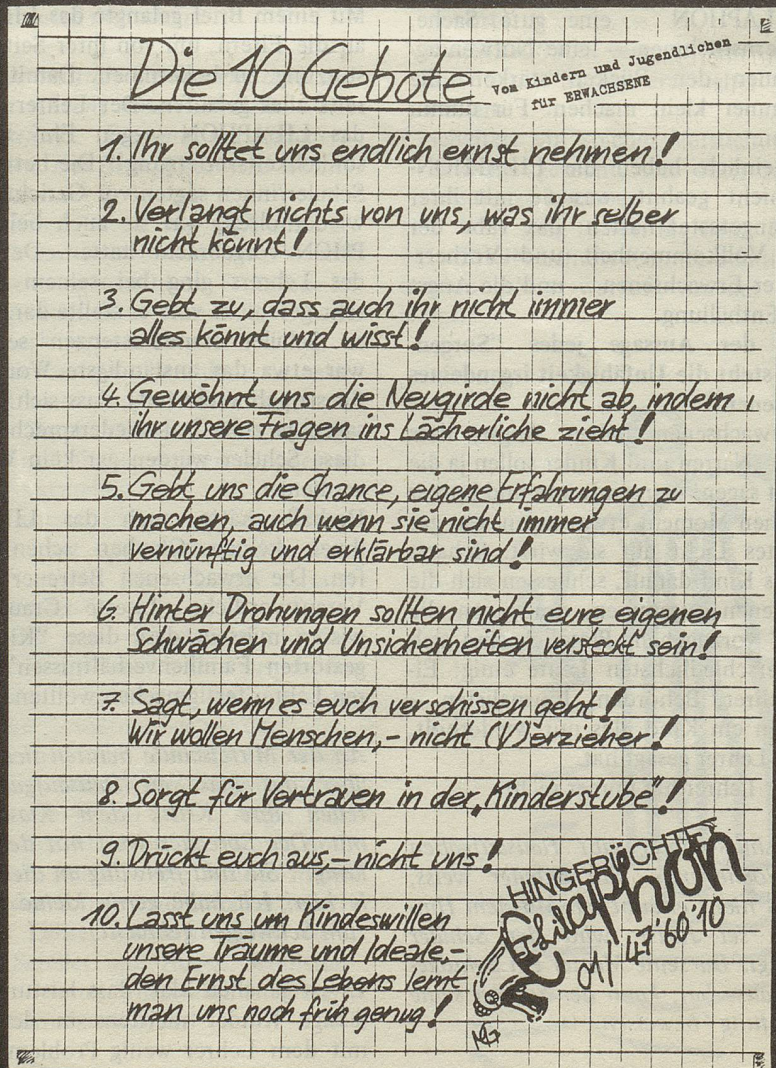 Die 10 Gebote
Vom Kindern und Jugendlichen
für ERWACHSENE
1. Ihr solltet uns endlich ernst nehmen!
2. Verlangt nichts von uns, was ihr selber
nicht könnt!
3. Gebt zu, dass auch ihr nicht immer
alles könnt und wisst!
4. Gewöhnt uns die Neugirde nicht ab, indem
ihr unsere Fragen ins Lächerliche zieht!
5. Gebt uns die Chance, eigene Erfahrungen zu
machen, auch wenn sie nicht immer
vernünftig und erklärbar sind!
6. Hinter Drohungen sollten nicht eure eigenen
Schwächen und Unsicherheiten versteckt sein!
7. Sagt, wenn es euch verschissen geht!
Wir wollen Menschen,- nicht (V)erzieher!
8. Sorgt für Vertrauen in der „Kinderstube"!
9. Drückt euch aus,- nicht uns!
10. Lasst uns um Kindeswillen
unsere Träume und Ideale,-
den Ernst des Lebens lernt
man uns noch früh genug!
Lilaphon
01/'47'60'10